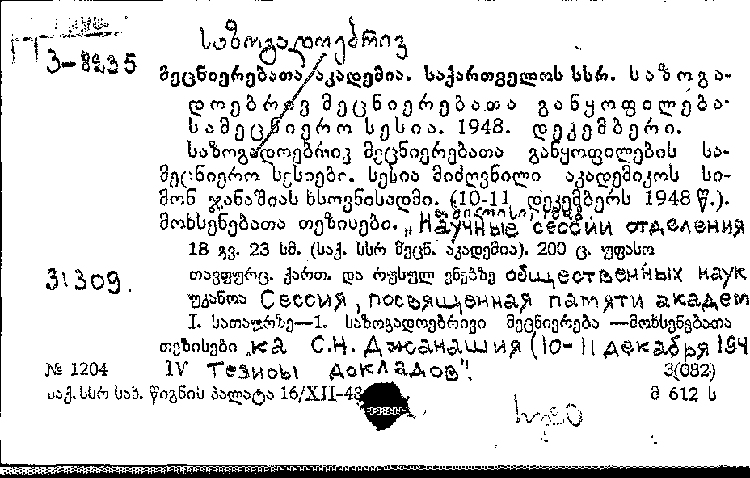 საზოგადოებრივ
3-8235
მეცნიერებათა აკადემია. საქართველოს სსრ. საზოგა-
დოებრივ მეცნიერებათა განყოფილება.
სამეცნიერო სესია. 1948. დეკემბერი.
საზოგადოებრივ მეცნიერებათა განყოფილების სა-
მეცნიერო სესიები. სესია მიძღვნილი აკადემიკოს სი-
მონ ჯანაშიას ხსოვნისადმი. (10-11 დეკემბერს 1948 წ.).
მოხსენებათა თეზისები. „Научные сессии отделения
18 გვ. 23 სმ. (საქ. სსრ მეცნ. აკადემია). 200 ც. უფასო
31309.
თავფურც. ქართ. და რუსულ ენებზე общественных наук
უკანოა Сессия, посвященная памяти академи
I. სათაურზე—1. საზოგადოებრივი მეცნიერება —მოხსენებათა
თეზისები ка С.Н. Джанашия (10-11 декабря 194
№ 1204 IV Тезисы докладов". 3(082)
საქ. სსრ საბ. წიგნის პალატა 16/XII-48 მ 612 ს